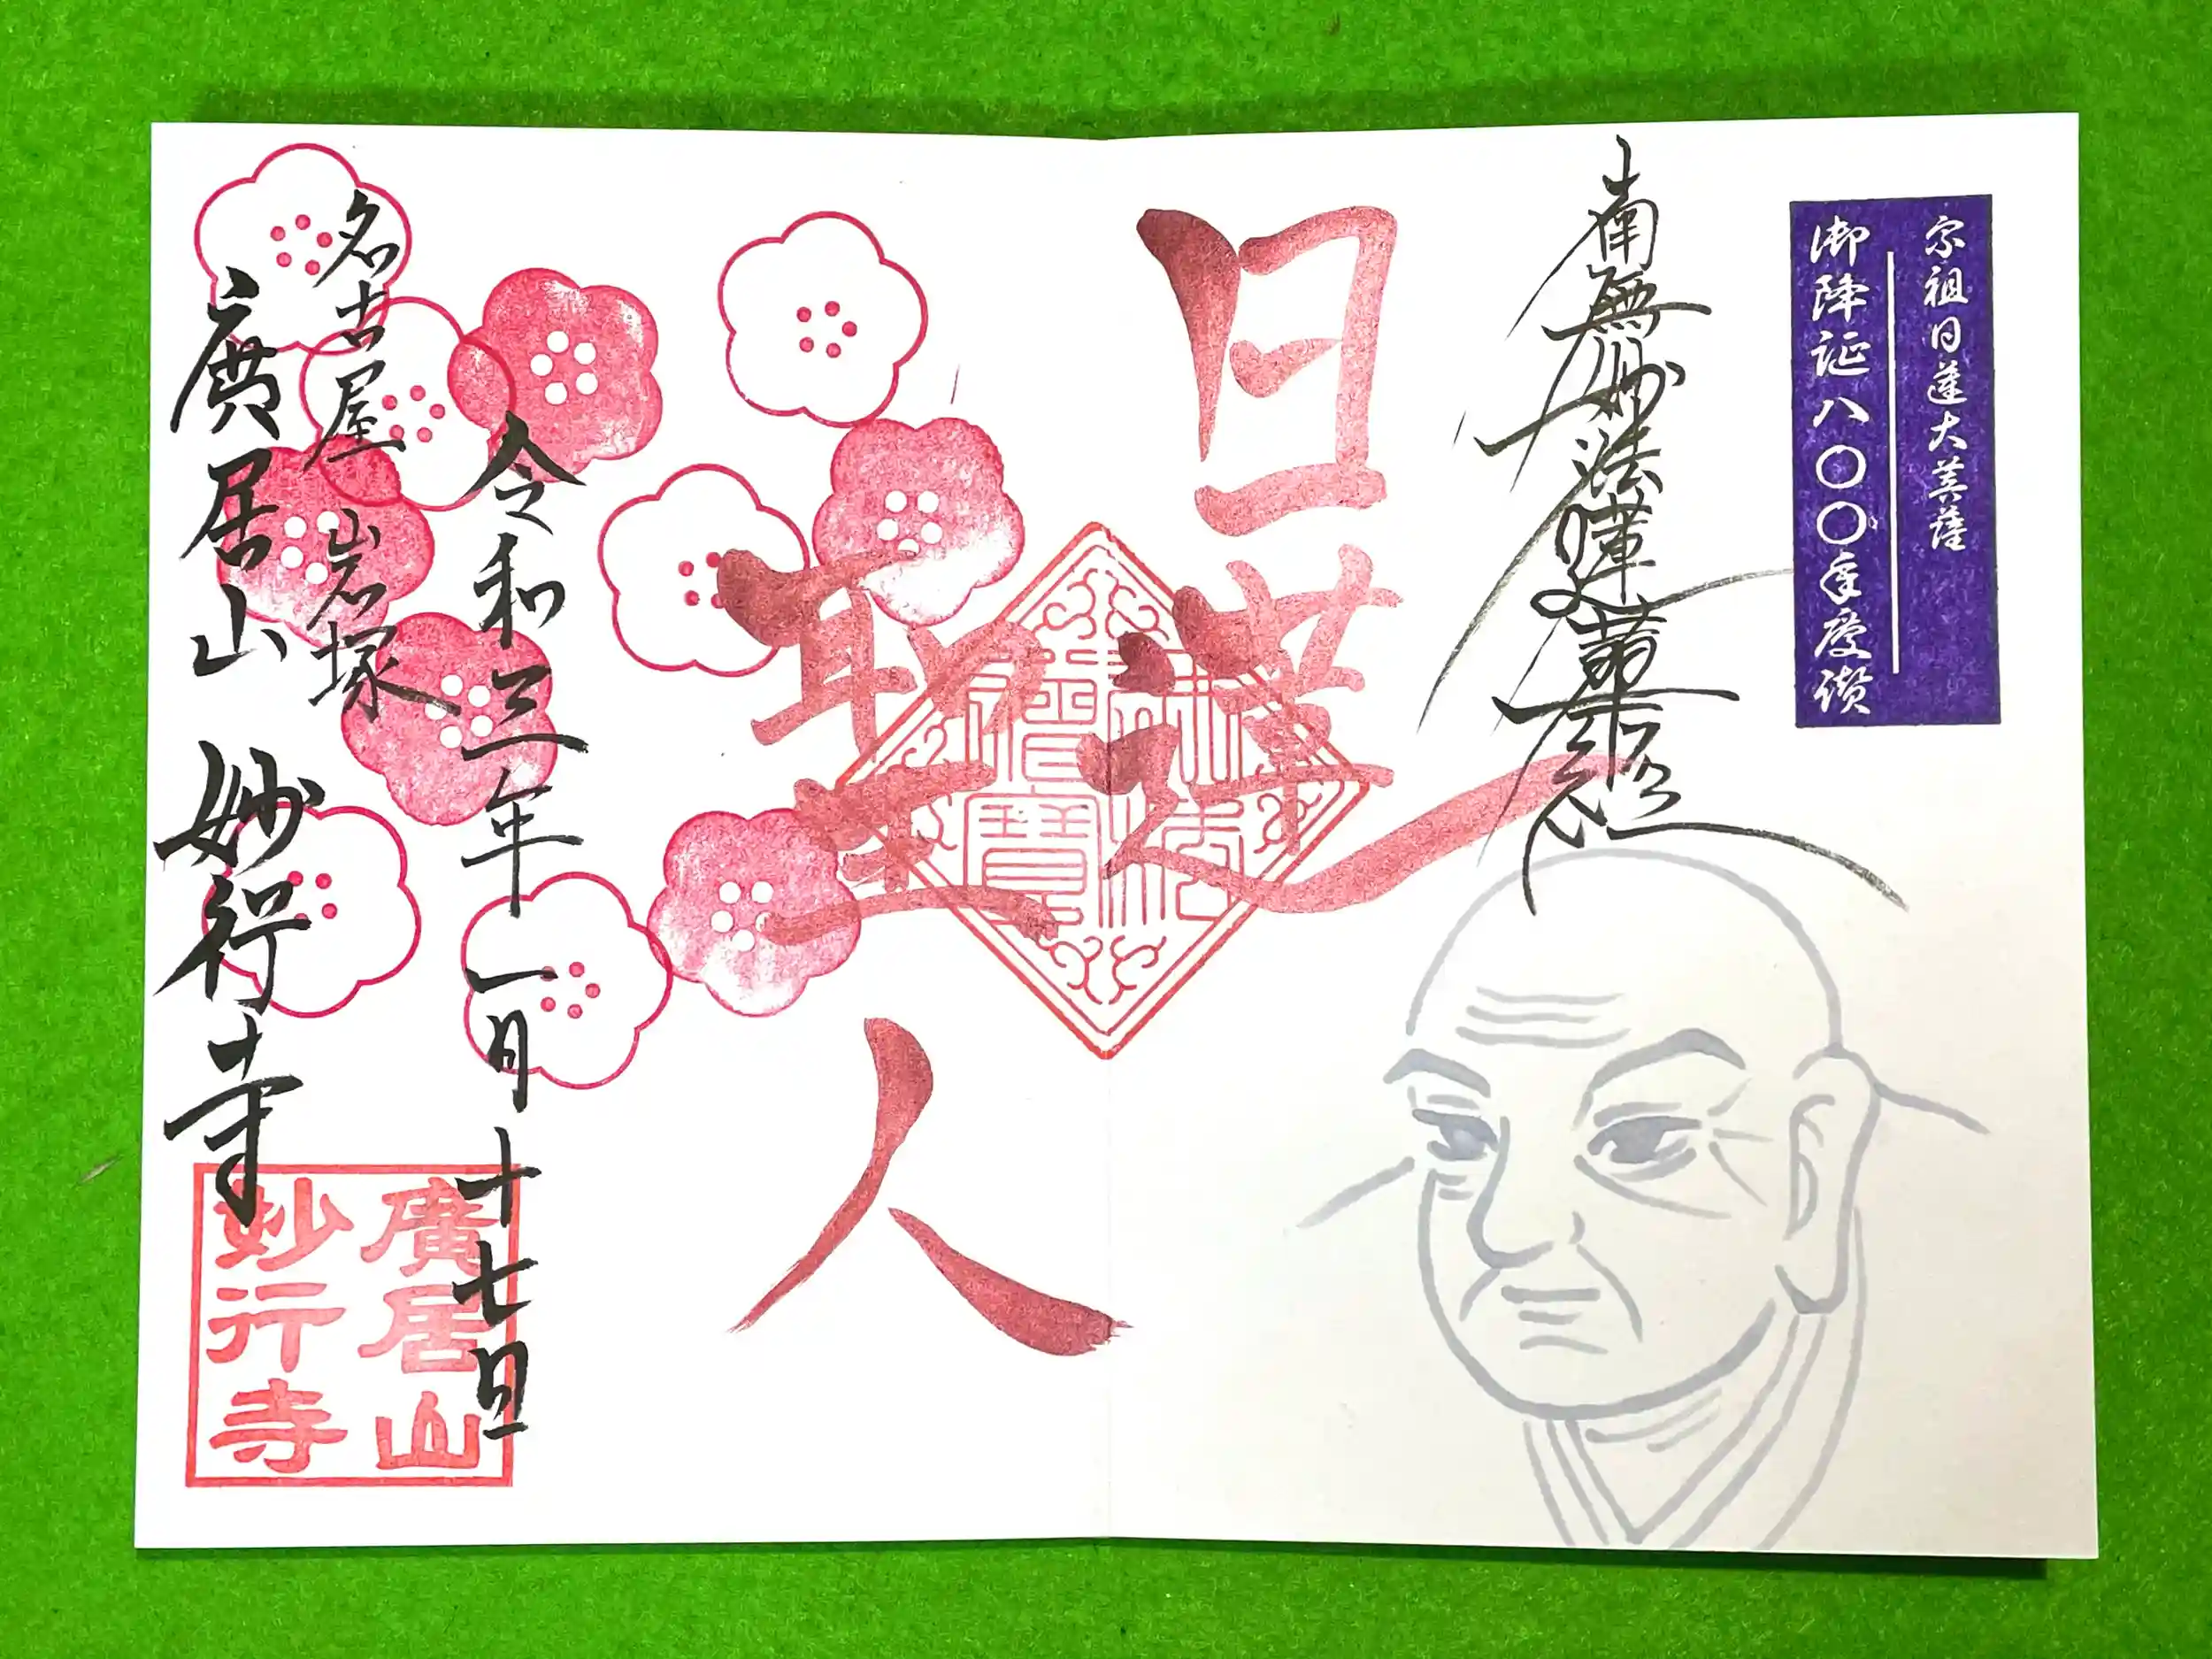 宗祖日蓮大菩薩
御降誕八〇〇年慶讃
南無妙法蓮華経
日蓮
聖人
令和三年一月十七日
名古屋 岩塚
廣居山 妙行寺
廣居山
妙行寺